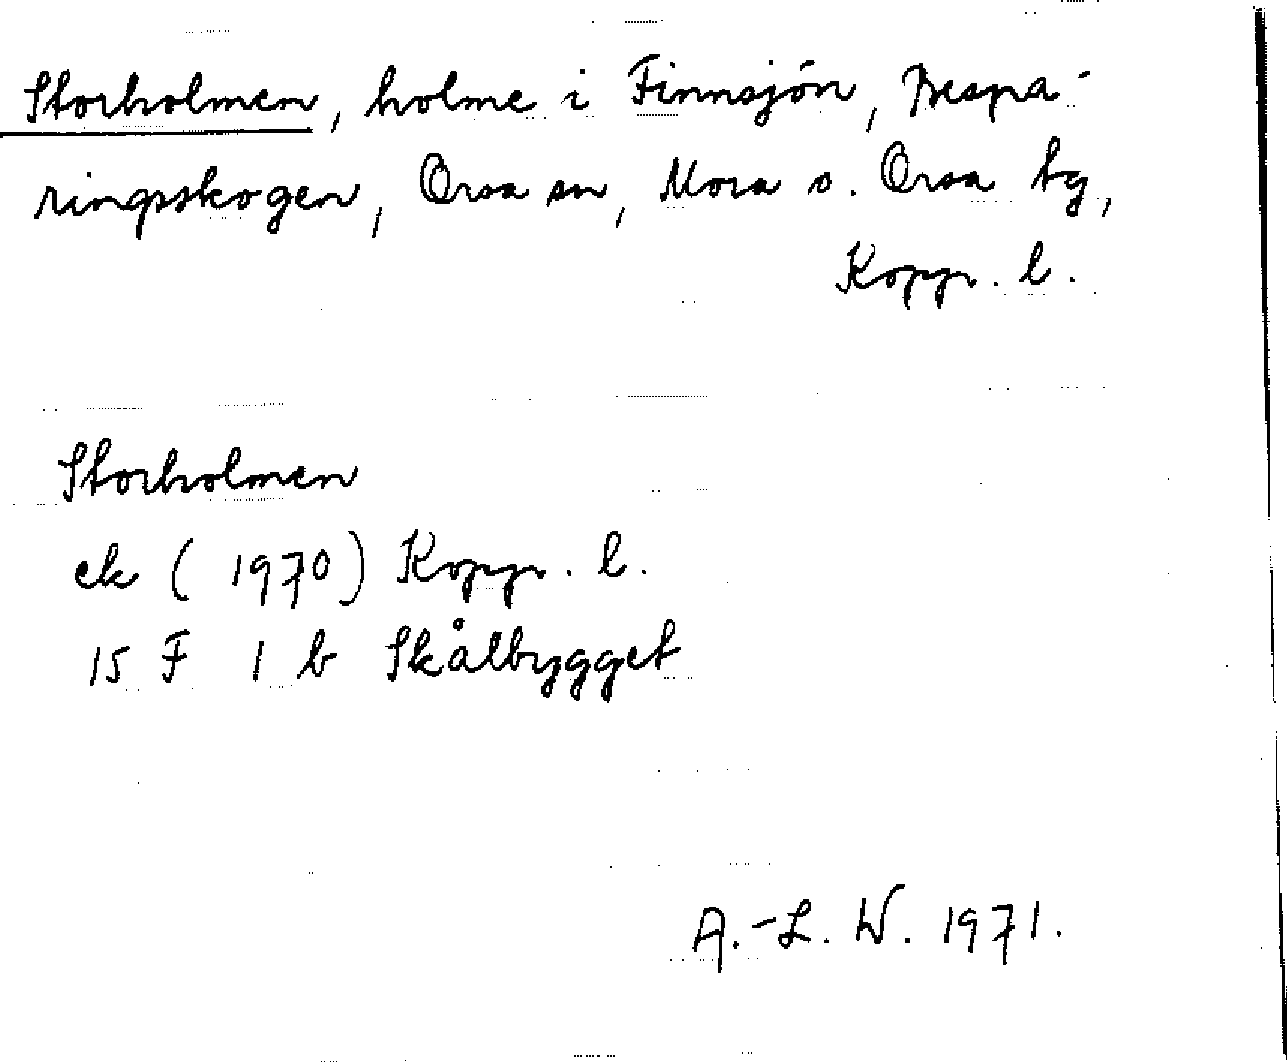 Storholmen, holme i Finnsjön, Bespa-
ringsskogen, Orsa sn, Mora o. Orsa tg,
Kopp. l.
Storholmen
ek (1970) Kopp. l.
15 F 1 b Skålbygget
A.-L. W. 1971.